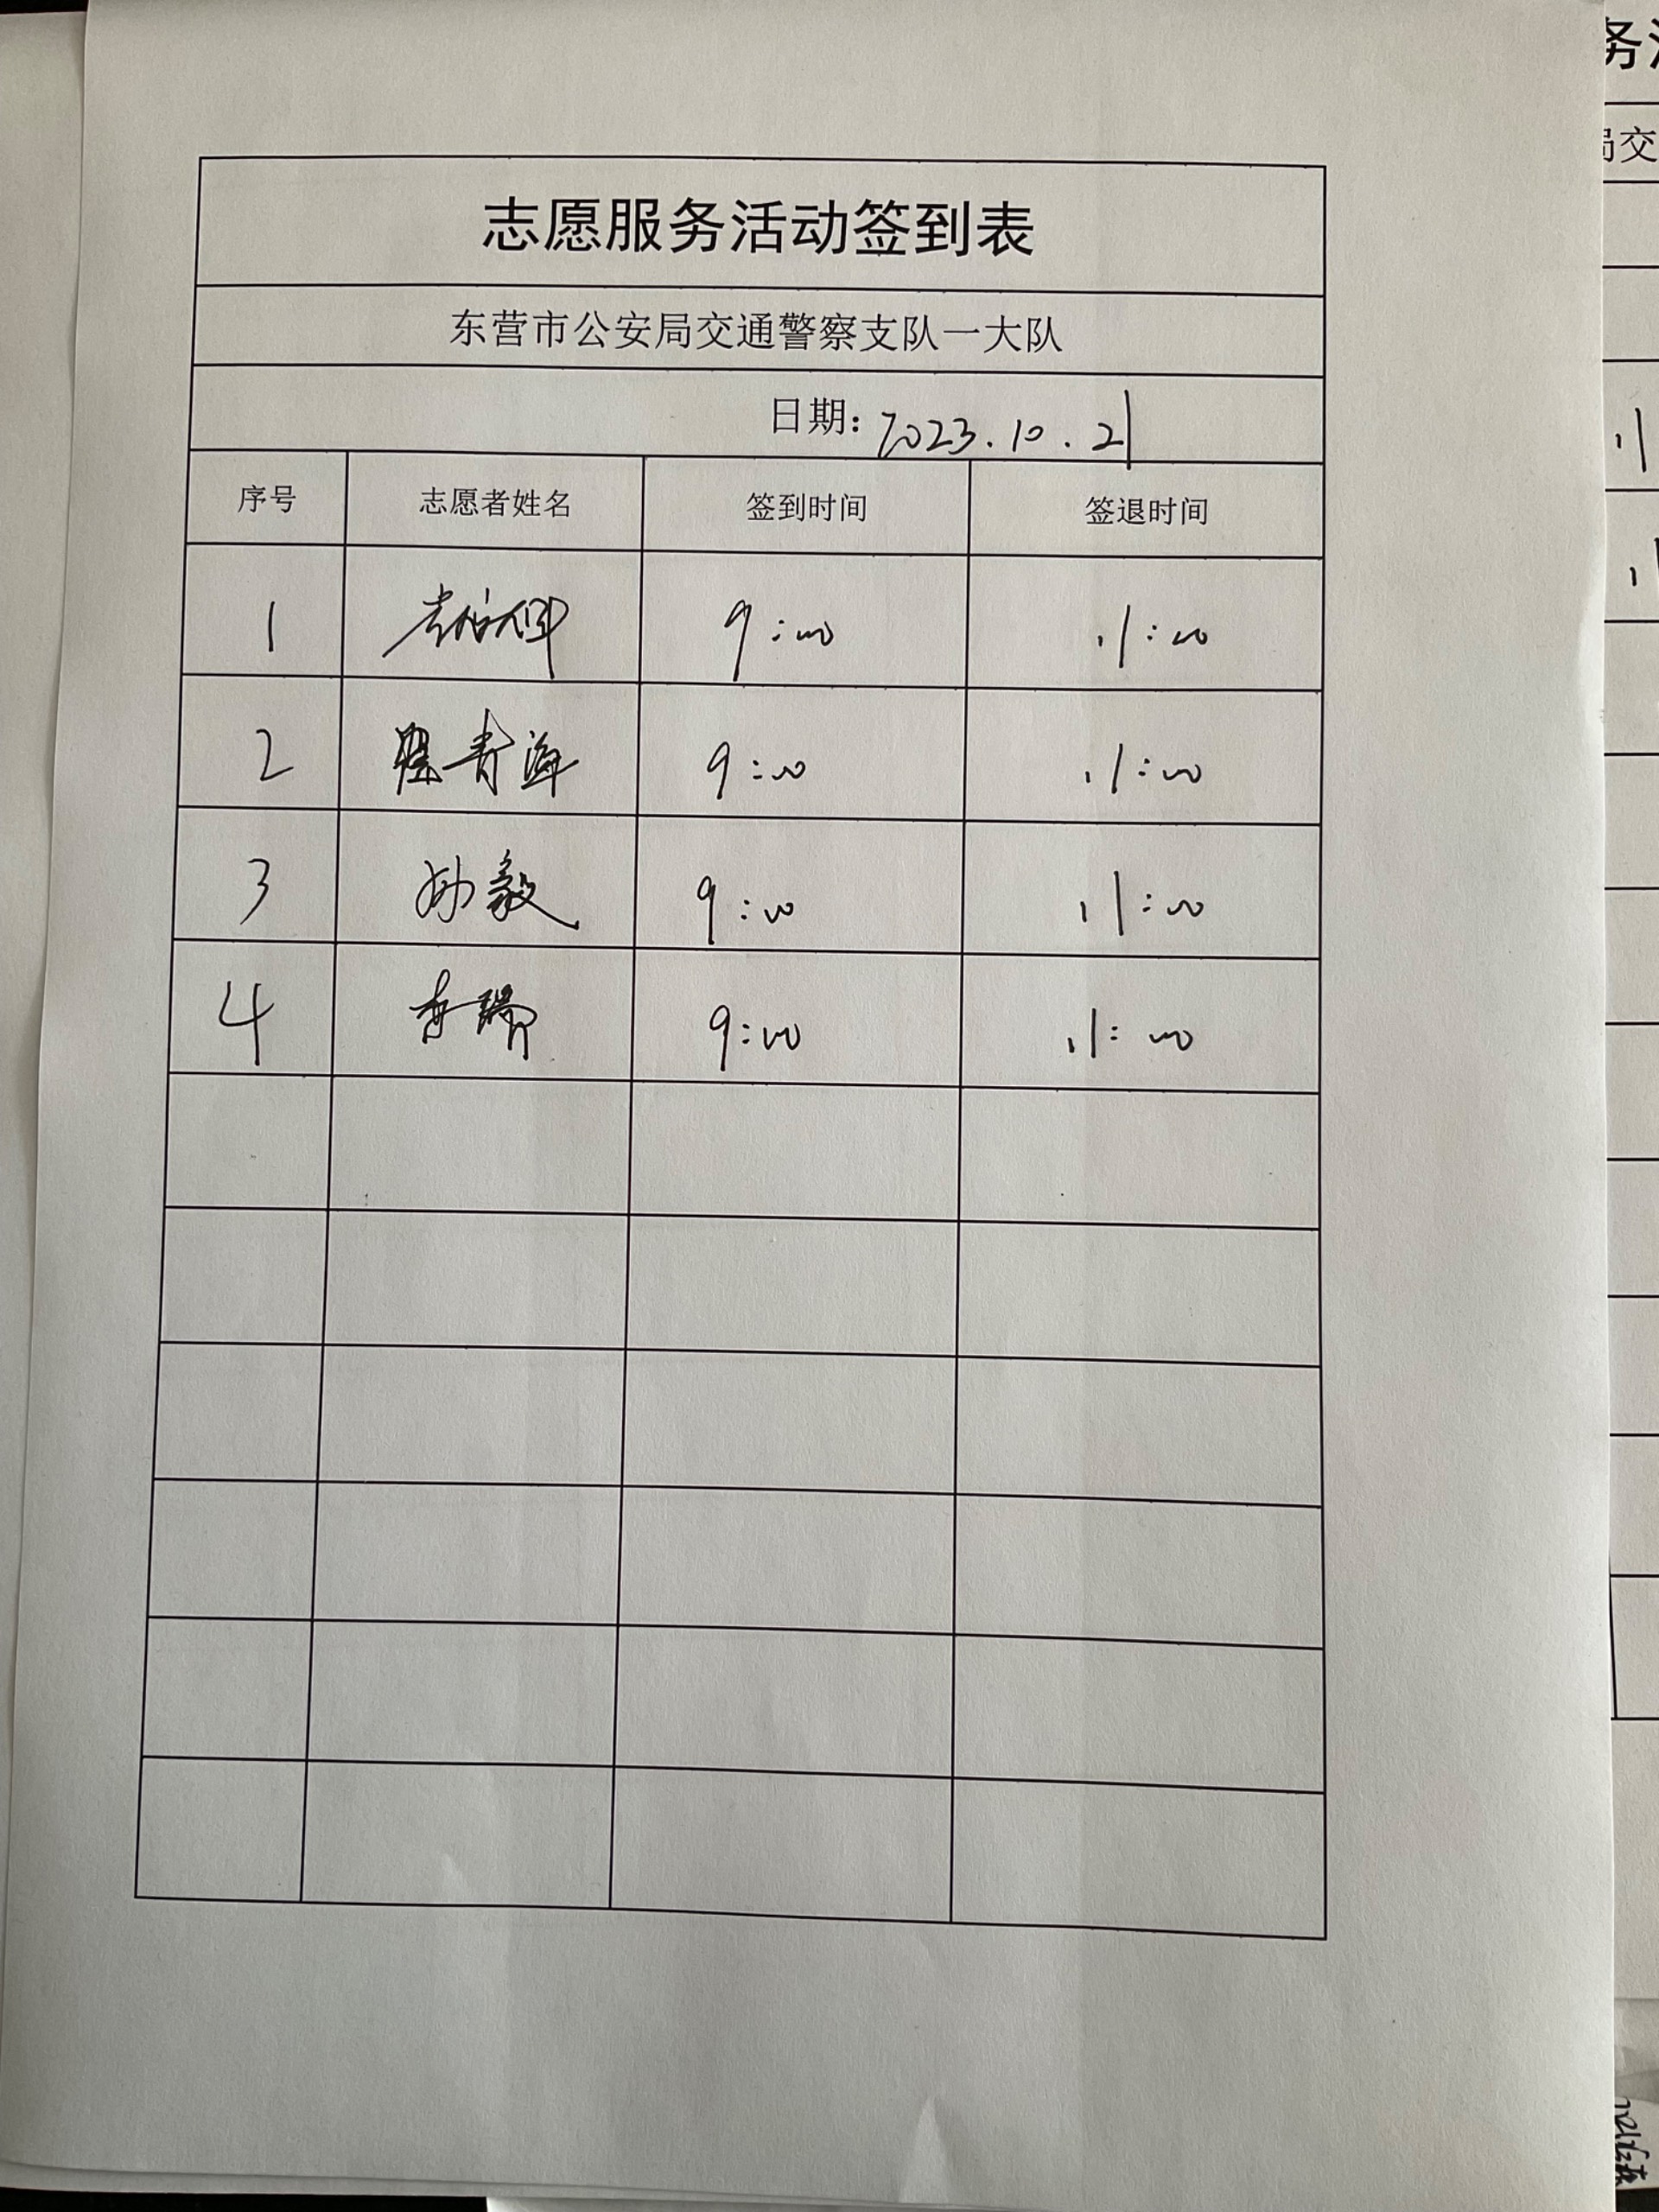 志愿服务活动签到表
东营市公安局交通警察支队一大队
日期：2023.10.21
序号 志愿者姓名 签到时间 签退时间
1 9:00 11:00
2 青海 9:00 11:00
3 孙毅 9:00 11:00
4 李瑞 9:00 11:00
务
局交